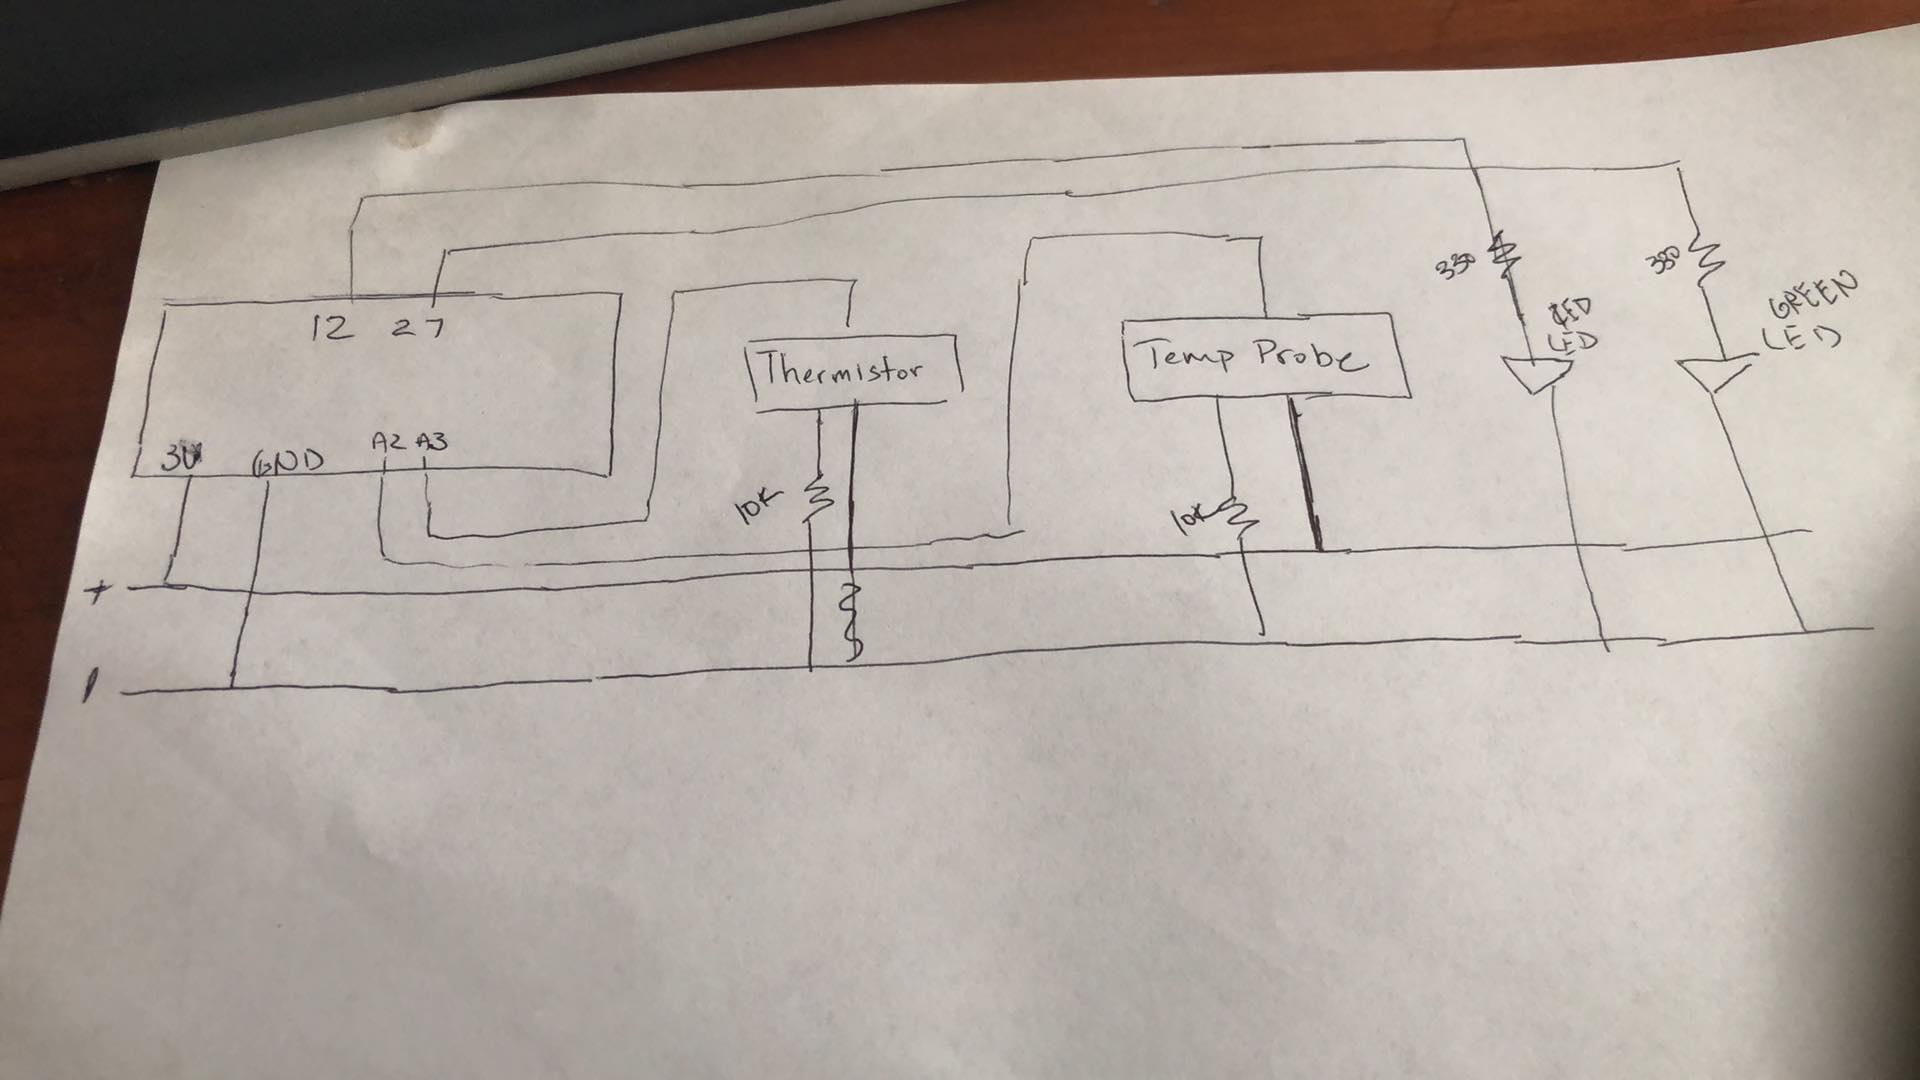 12 27
3V GND A2 A3
Thermistor
10K
Temp Probe
10K
330
RED
LED
330
GREEN
LED
+
-